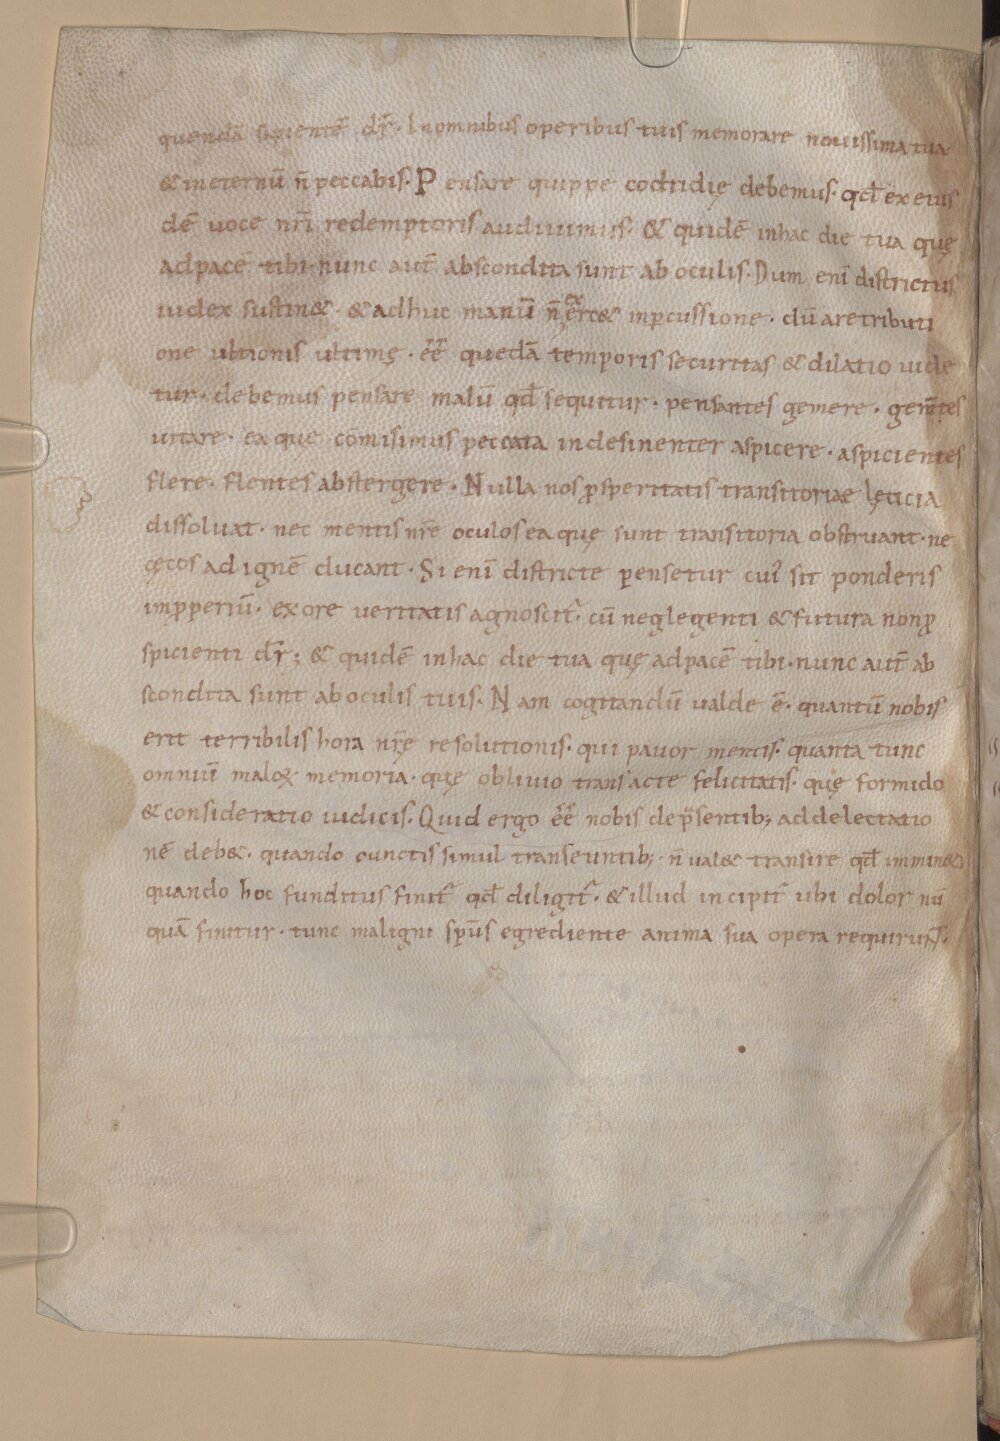 quendā sapientē dr̄. In omnibus operibus tuis memorare nouissima tua
& in eternū n̄ peccabis. Pensare quippe cottidie debemus. qd̄ ex eius
dē uoce nr̄i redemptoris audiuimus. & quidē in hac die tua quę
ad pacē tibi. nunc aut̄ abscondita sunt ab oculis. Dum enī districtus
iudex sustin&. & adhuc manū n̄ exerc& in pcussione. dū a retributi
one ultionis ultimę. ēē quedā temporis securitas & dilatio uide
tur. debemus pensare malū qd̄ sequitur. pensantes gemere. gem̄tes
uitare. ea quę cōmisimus peccata indesinenter aspicere. aspicientes
flere. flentes abstergere. Nulla nos psperitatis transitoriae lęticia
dissoluat. nec mentis nr̄e oculos ea quę sunt transitoria obstruant. ne
cęcos ad ignē ducant. Si enī districte pensetur cuī sit ponderis
impperiū. ex ore ueritatis agnoscit̄. cū neglegenti & futura non p
spicienti dr̄; & quidē in hac die tua quę ad pacē tibi. nunc aut̄ ab
scondita sunt ab oculis tuis. Nam cogitandū ualde ē. quantū nobis
erit terribilis hora nr̄ę resolutionis. qui pauor mentis. quanta tunc
omniū maloꝝ memoria. quę obliuio transacte felicitatis. quę formido
& consideratio iudicis. Quid ergo ēē nobis de p̄sentib; ad delectatio
nē deb&. quando cunctis simul transeuntib; n̄ ual& transire qd̄ immin&
quando hoc funditus finit̄ qd̄ diligit̄. & illud incipit̄ ubi dolor nū
quā finitur. tunc maligni sp̄us egrediente anima sua opera requirunt.